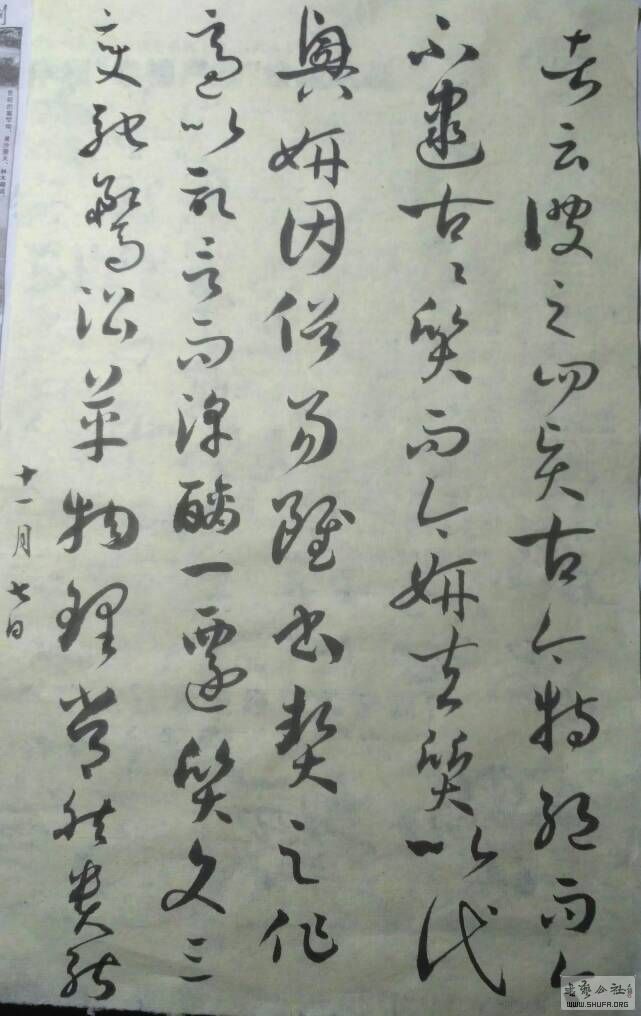 者云彼之四賢古今特絕而今
不逮古〻質而今妍夫質以代
興妍因俗易雖書契之作
適以記言而淳醨一遷質文三
變馳騖沿革物理常然貴能
十一月七日
書藝公社
WWW.SHUFA.ORG